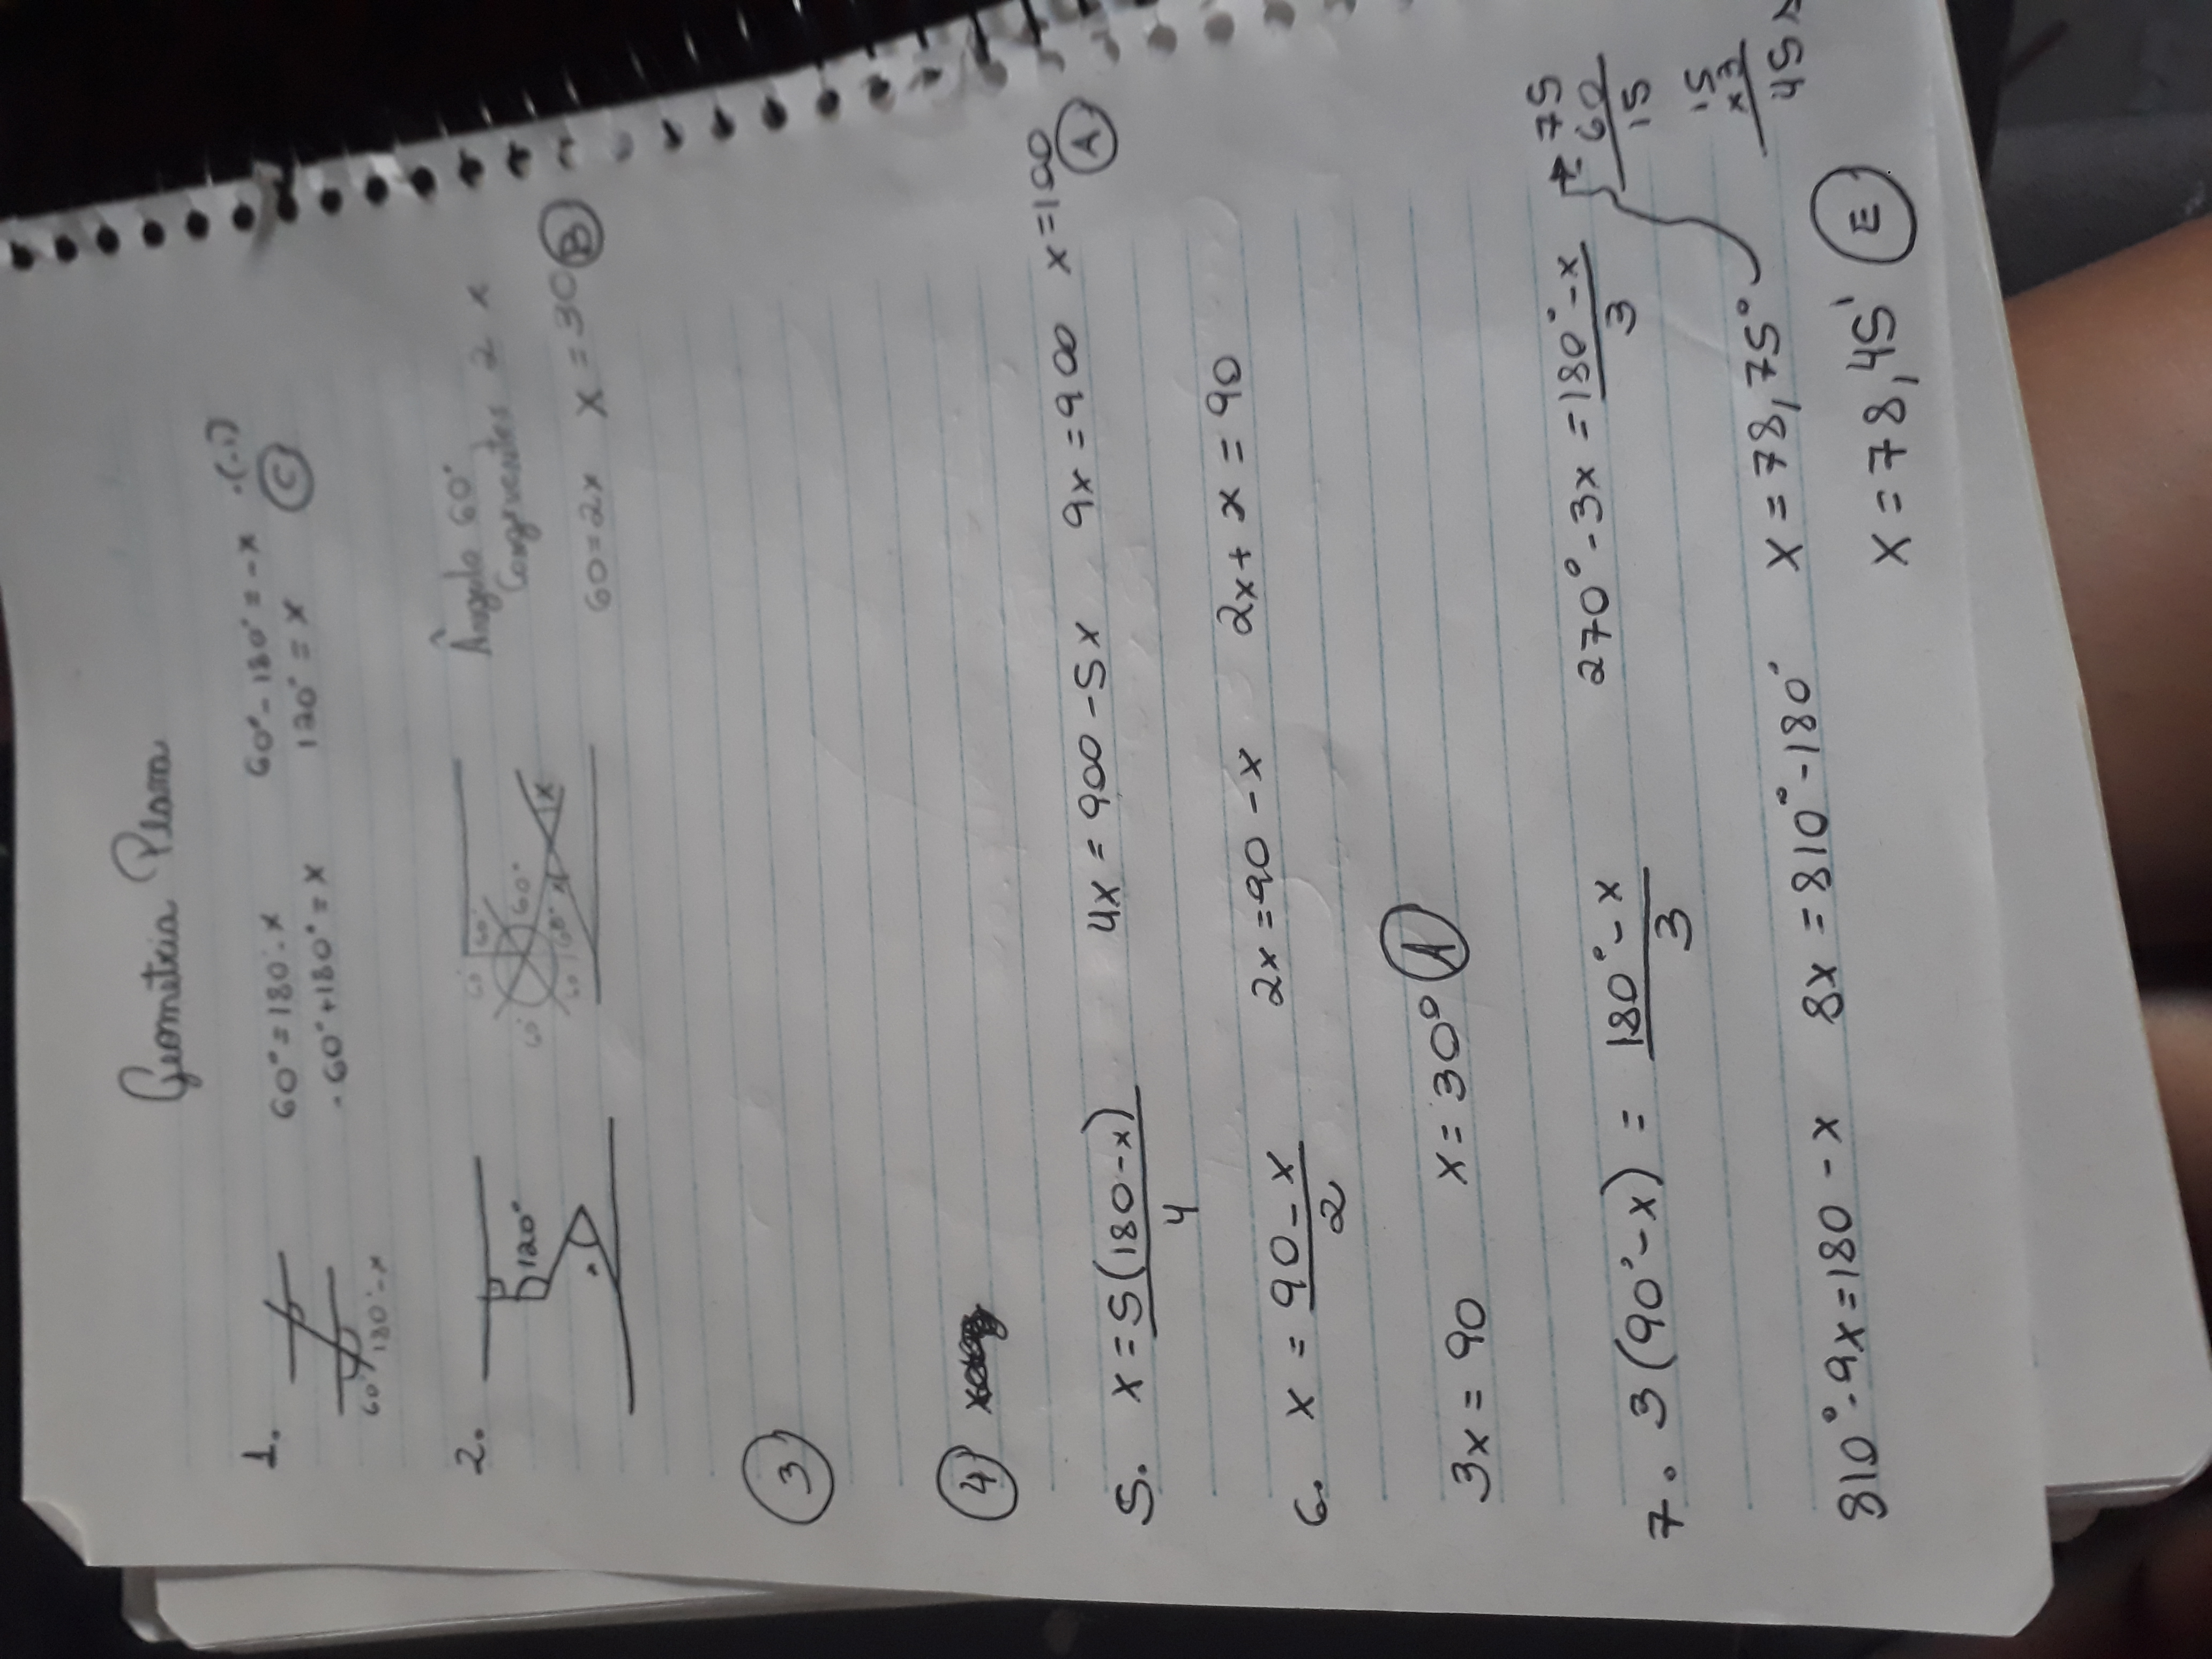 Geometria Plana
1. 60° = 180 - x 60° - 180° = -x .(-1)
- 60° + 180° = x 120° = x C
60° 180° - x
2. 120° 60° 60° 60° 60° 60 60° x x Ângulo 60°
Congruentes 2 x
60 = 2x x = 30 B
3
4
5. x = 5(180 - x)/4 4x = 900 - 5x 9x = 900 x = 100 A
6. x = 90 - x/2 2x = 90 - x 2x + x = 90
3x = 90 x = 30° A
7. 3(90° - x) = 180° - x/3 270° - 3x = 180° - x/3
75
- 60
15
15
x3
45
810° - 9x = 180 - x 8x = 810° - 180° x = 78,75°
x = 78,45' E